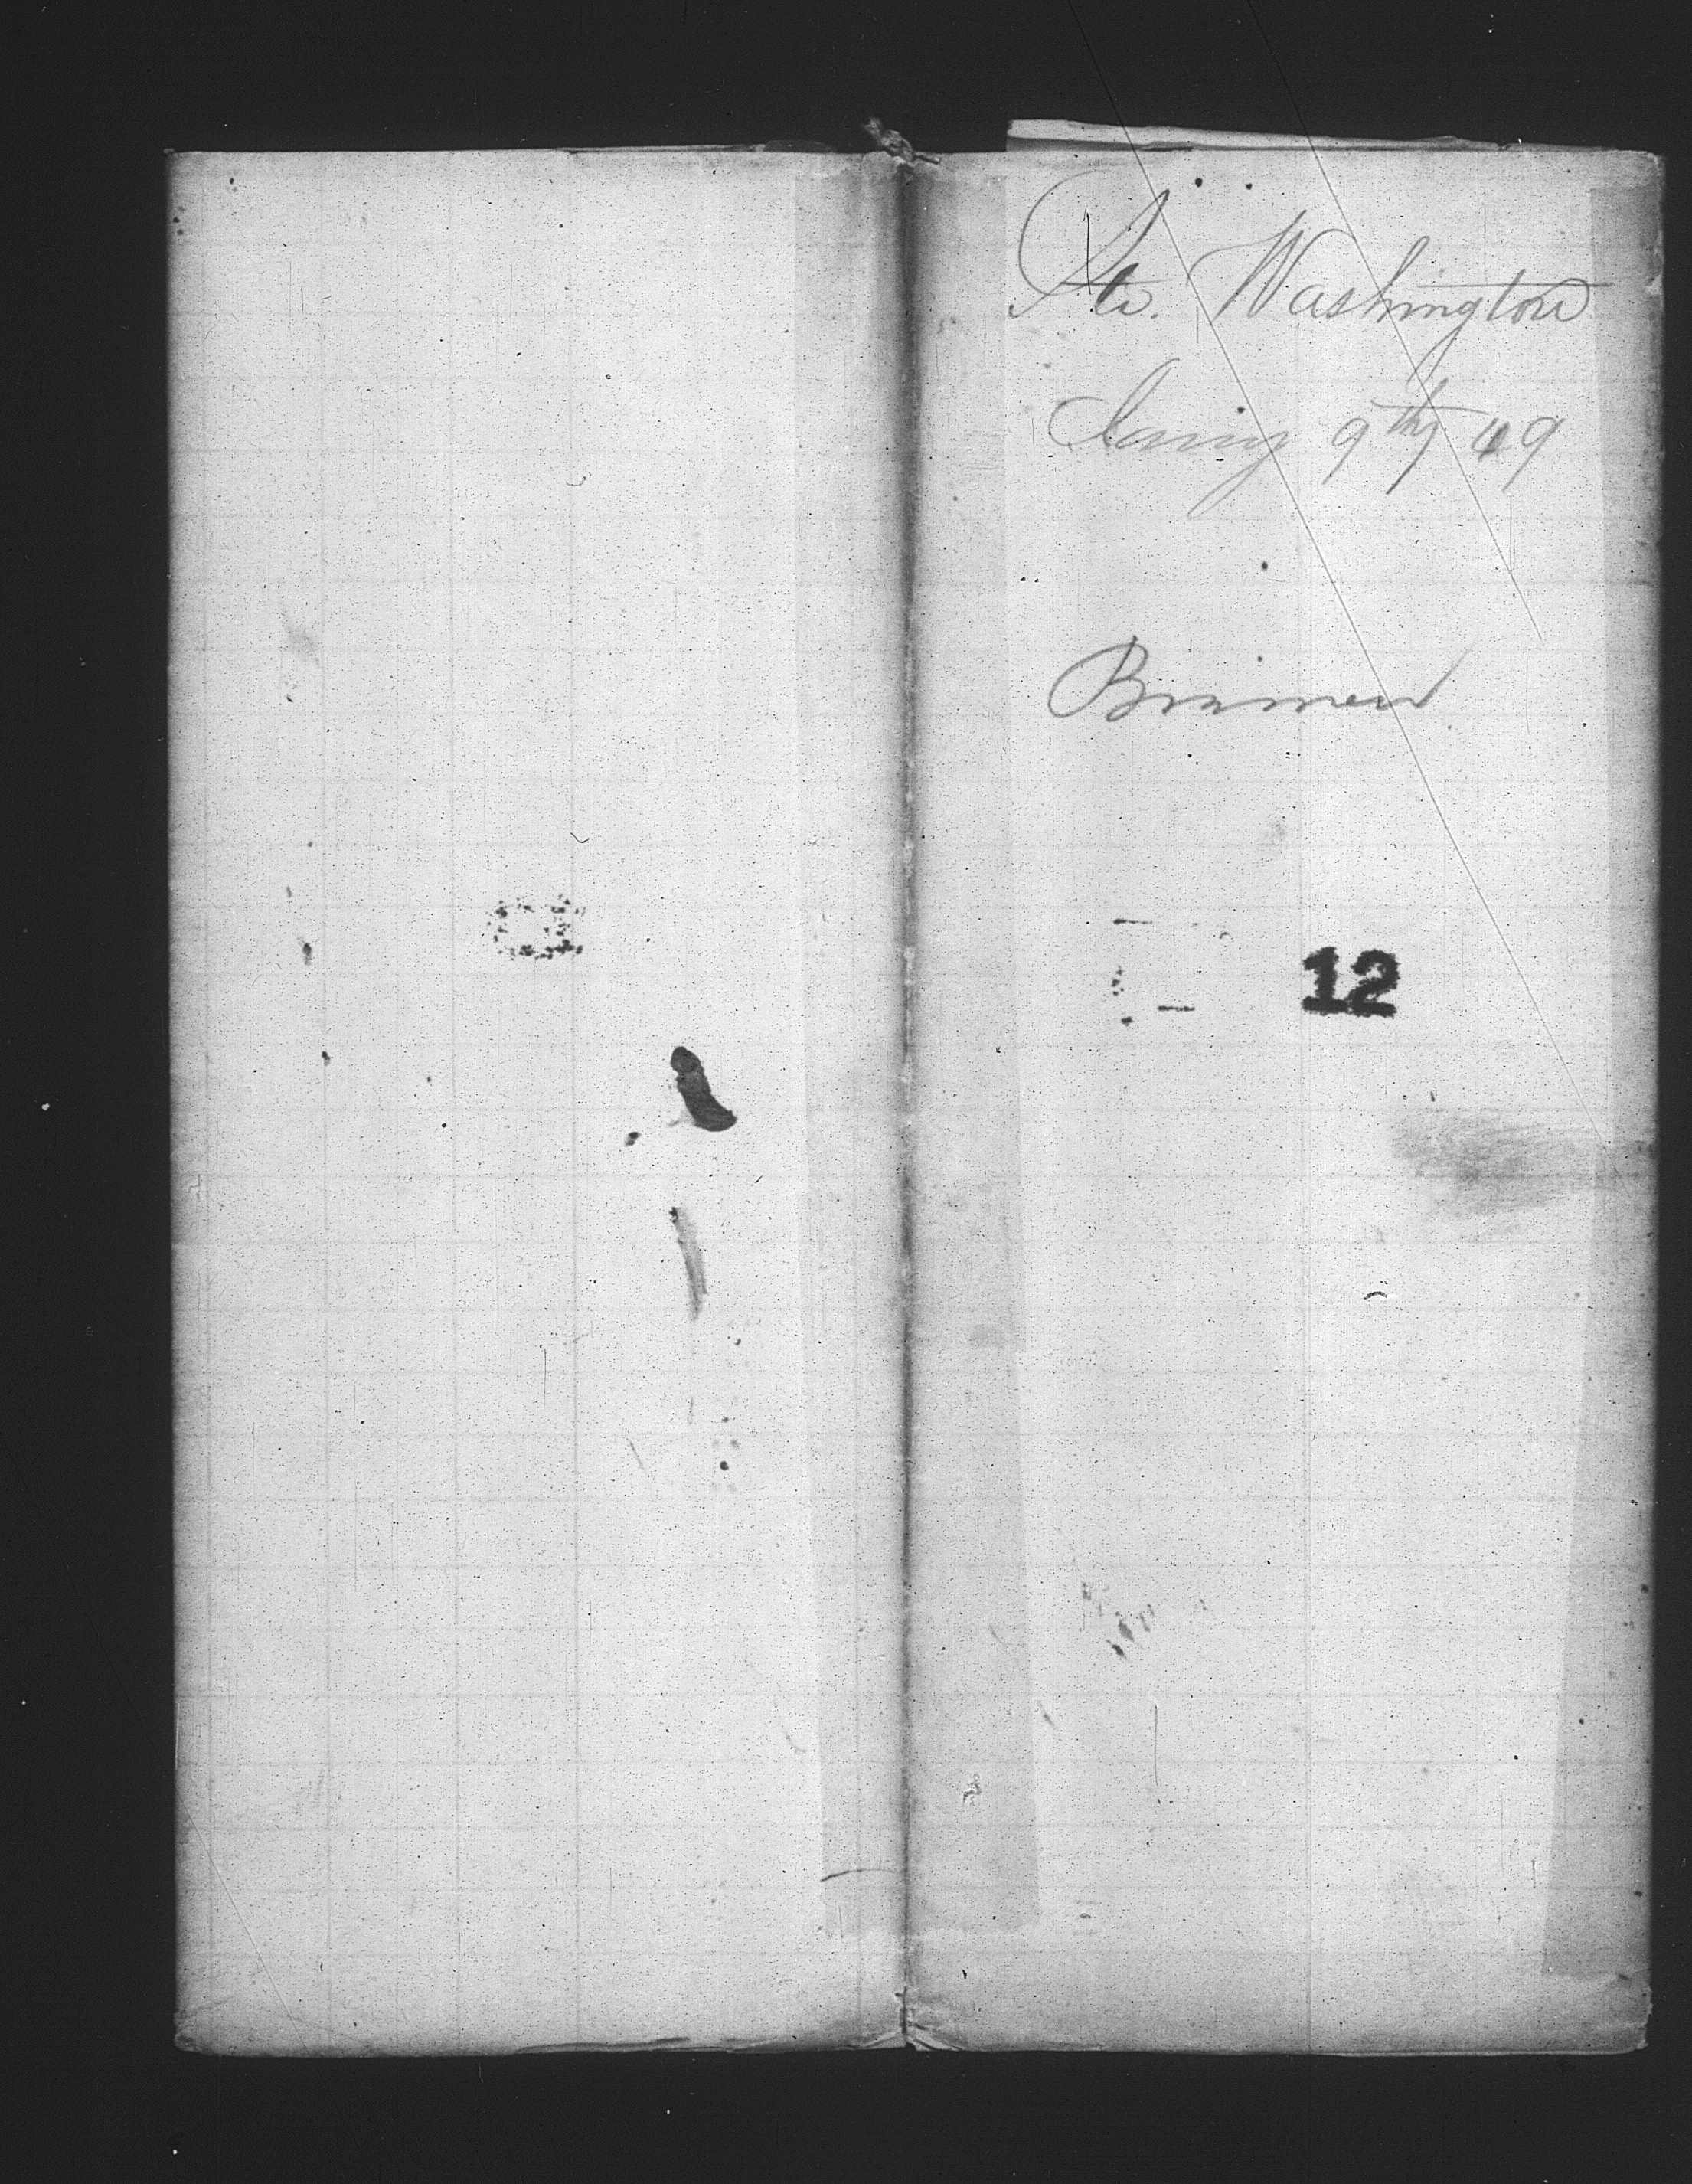 Str. Washington
Jany 9th 49
Bremen
12